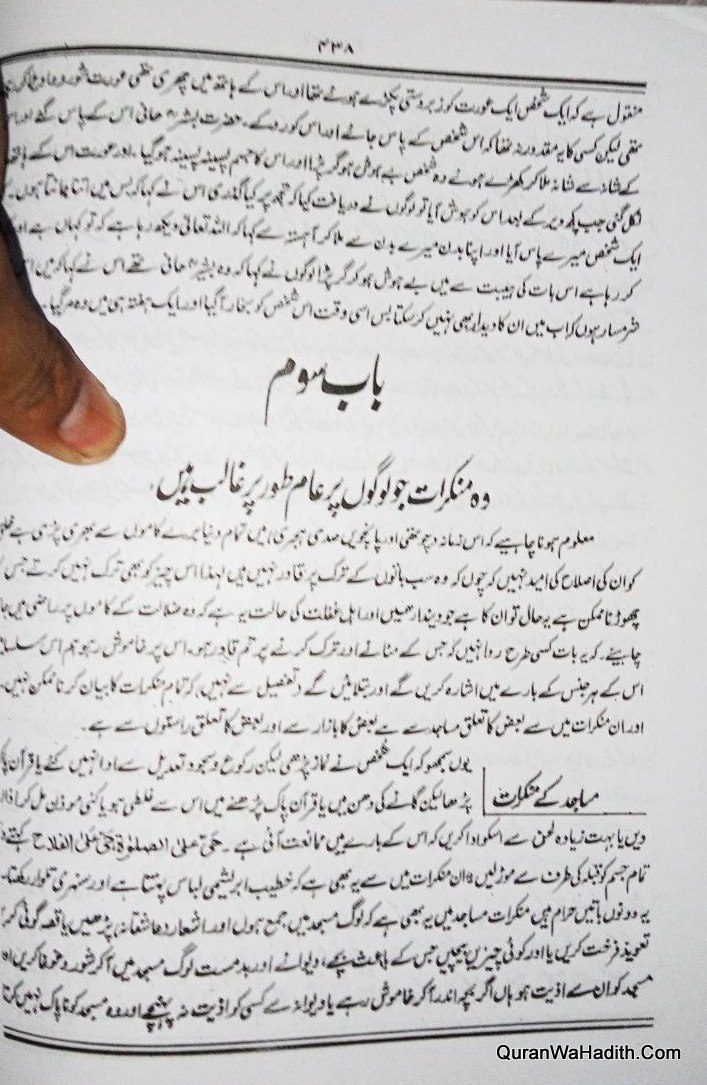 ۴۳۸
منقول ہے کہ ایک شخص ایک عورت کو زبردستی پکڑے ہوئے تھا اور اس کے ہاتھ میں چھری تھی عورت شور و
تھی لیکن کسی کا یہ مقدور نہ تھا کہ اس شخص کے پاس جائے اور اس کو روکے۔ حضرت بشر حافی اس کے پاس گئے اور
کے شانہ سے شانہ ملا کر کھڑے ہوئے وہ شخص بے ہوش ہو گر پڑا اور اس کا جسم پسینہ پسینہ ہو گیا۔ اور عورت اس کے ہاتھ
نکل گئی جب کچھ دیر کے بعد اس کو ہوش آیا تو لوگوں نے دریافت کیا کہ تجھ پر کیا گذری اس نے کہا کہ بس میں اتنا جانتا ہوں
ایک شخص میرے پاس آیا اور اپنا بدن میرے بدن سے ملا کر آہستہ سے کہا کہ اللہ تعالیٰ دیکھ رہا ہے کہ تو کہاں ہے اور
کر رہا ہے اس بات کی ہیبت سے میں بے ہوش ہو کر گر پڑا لوگوں نے کہا کہ وہ بشر حافی تھے اس نے کہا کہ میں
شرمسار ہوں کہ اب میں ان کا دیدار بھی نہیں کر سکتا بس اسی وقت اس شخص کو بخار آ گیا اور ایک ہفتہ ہی میں وہ مر گیا۔
باب سوم
وہ منکرات جو لوگوں پر عام طور پر غالب ہیں،
معلوم ہونا چاہیے کہ اس زمانہ (جو تھی اور پانچویں صدی ہجری) میں تمام دنیا برے کاموں سے بھری پڑی ہے
کو ان کی اصلاح کی امید نہیں کہ چوں کہ وہ سب باتوں کے ترک پر قادر نہیں ہیں لہٰذا اس چیز کو بھی ترک نہیں کرتے جس
چھوڑنا ممکن ہے یہ حال تو ان کا ہے جو دیندار ہیں اور اہل غفلت کی حالت یہ ہے کہ وہ ضلالت کے کاموں پر راضی ہیں
چاہیئے۔ کہ یہ بات کسی طرح روا نہیں کہ جس کے مٹانے اور ترک کرنے پر تم قادر ہو۔ اس پر خاموش رہو ہم اس
اس کے ہر جنس کے بارے میں اشارہ کریں گے اور بتلائیں گے (تفصیل سے نہیں) کہ تمام منکرات کا بیان کرنا ممکن نہیں۔
اور ان منکرات میں سے بعض کا تعلق مساجد سے ہے بعض کا بازار سے اور بعض کا تعلق راستوں سے ہے۔
یوں سمجھو کہ ایک شخص نے نماز پڑھی لیکن رکوع و سجود تعدیل سے ادا نہیں کئے یا قرآن
مساجد کے منکرات
پڑھا لیکن گانے کی دھن میں یا قرآن پاک پڑھنے میں اس سے غلطی ہو یا کئی موذن مل کر
دیں یا بہت زیادہ لحن سے اسکو ادا کریں کہ اس کے بارے میں ممانعت آئی ہے۔ حَیَّ عَلَی الصَّلٰوۃِ حَیَّ عَلَی الْفَلَاح کہتے
تمام جسم کو قبلہ کی طرف سے موڑ لیں ان منکرات میں سے یہ بھی ہے کہ خطیب ابریشمی لباس پہنتا ہے اور سنہری تلوار رکھتا۔
یہ دونوں باتیں حرام ہیں منکرات مساجد میں یہ بھی ہے کہ لوگ مسجد میں جمع ہوں اور اشعار (عاشقانہ) پڑھیں یا قصہ گوئی
تعویذ فرخت کریں یا اور کوئی چیزیں بیچیں جس کے باعث بچے، دیوانے اور بد مست لوگ مسجد میں آکر شور و غوغا کریں
مسجد کو ان سے اذیت ہو ہاں اگر بچہ اندر آکر خاموش رہے یا دیوانہ سے کسی کو اذیت نہ پہنچے اور وہ مسجد کو ناپاک نہیں کرتا
QuranWaHadith.Com